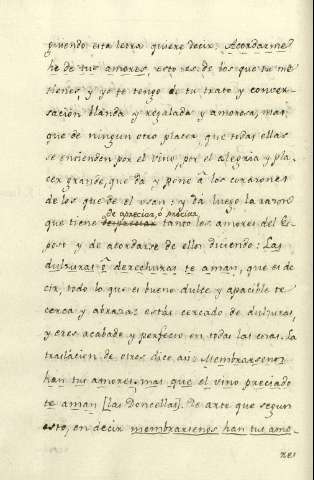 giendo esta letra quiere decir: Acordarme
he de tus amores, esto es: de los que tu me
tienes, y yo te tengo de tu trato y conver-
sación blanda y regalada y amorosa, mas
que de ningun otro placer, que todas ellas
se encienden por el vino, por el alegria y pla-
cer grande, que da y pone á los corazones
de los que de él usan: y dá luego la razon
de apreciar, ó preciar
que tiene tanto los amores del Es-
poso y de acordarse de ellos diciendo: Las
dulzuras ó derechuras te aman, que es de
cir, todo lo que es bueno dulce y apacible te
cerca y abraza: estás cercado de dulzuras,
y eres acabado y perfecto en todas las cosas. La
traslacion de otros dice asi: Membrarsenos
han tus amores, mas que el vino preciado
te aman [las Doncellas]. De arte que segun
esto, en decir membrarsenos han tus amo-
res